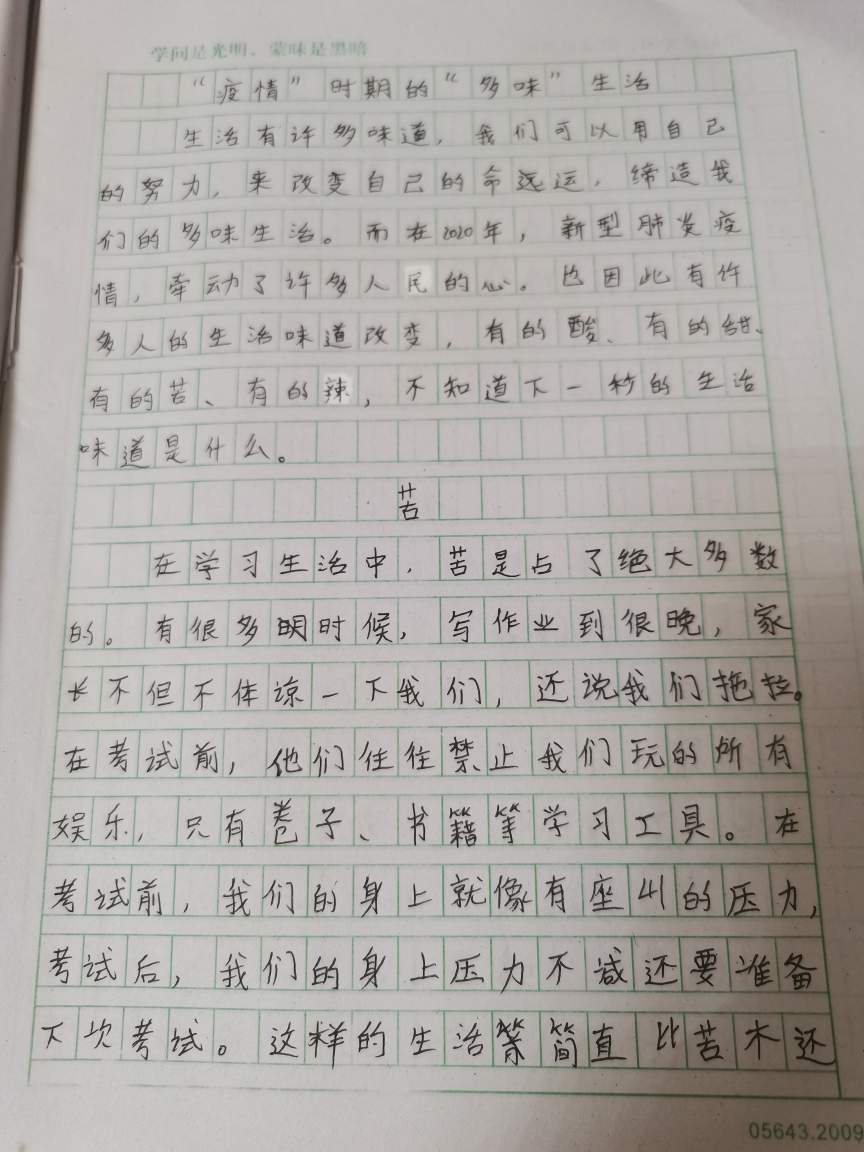 学问是光明，蒙昧是黑暗
“疫情”时期的“多味”生活
生活有许多味道，我们可以用自己
的努力，来改变自己的命远运，缔造我
们的多味生活。而在2020年，新型肺炎疫
情，牵动了许多人民的心。也因此有许
多人的生活味道改变，有的酸、有的甜、
有的苦、有的辣，不知道下一秒的生活
味道是什么。
苦
在学习生活中，苦是占了绝大多数
的。有很多明时候，写作业到很晚，家
长不但不体谅一下我们，还说我们拖拉。
在考试前，他们往往禁止我们玩的所有
娱乐，只有卷子、书籍等学习工具。在
考试前，我们的身上就像有座山的压力，
考试后，我们的身上压力不减还要准备
下次考试。这样的生活简直比苦木还
05643.2009